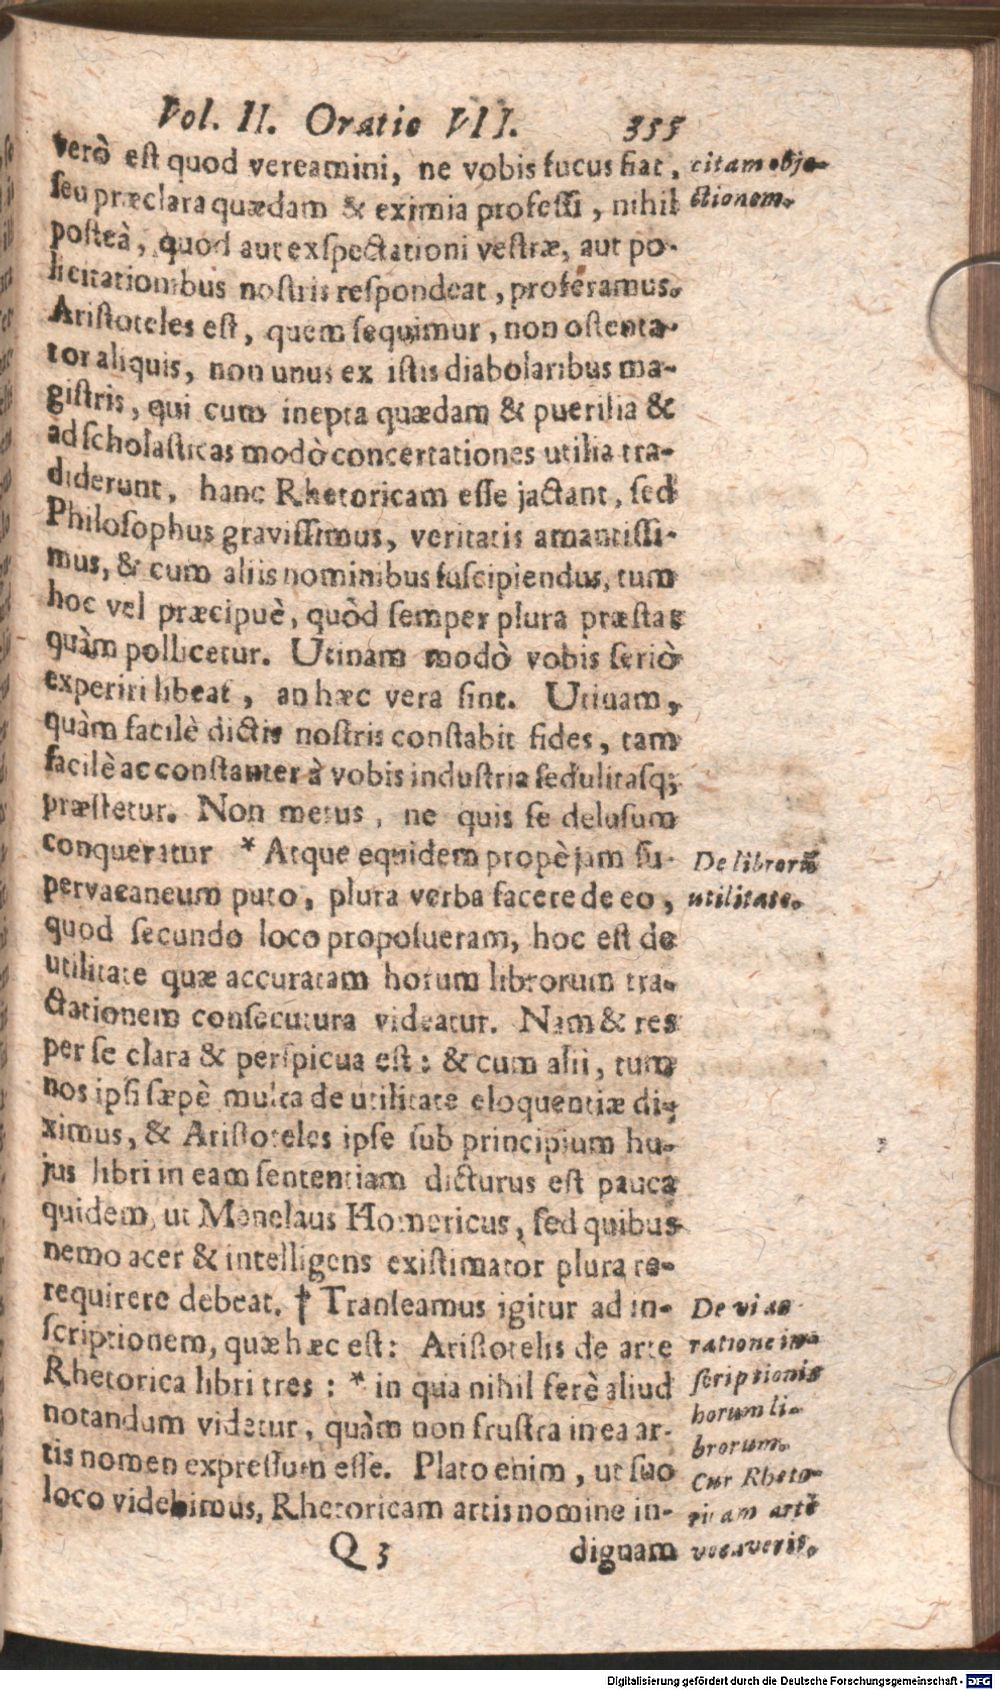 Vol. II. Oratio VII. 355
verò est quod vereamini, ne vobis fucus fiat,
seu præclara quædam & eximia professi, nihil
posteà, quod aut exspectationi vestræ, aut po-
licitationibus nostris respondeat, proferamus.
Aristoteles est, quem sequimur, non ostenta-
tor aliquis, non unus ex istis diabolaribus ma-
gistris, qui cum inepta quædam & puerilia &
ad scholasticas modò concertationes utilia tra-
diderunt, hanc Rhetoricam esse jactant, sed
Philosophus gravissimus, veritatis amantissi-
mus, & cum aliis nominibus suscipiendus, tum
hoc vel præcipuè, quòd semper plura præstat
quàm pollicetur. Utinam modò vobis seriò
experiri libeat, an hæc vera sint. Utinam,
quàm facilè dictis nostris constabit fides, tam
facilè ac constanter à vobis industria sedulitasq;
præstetur. Non metus, ne quis se delusum
conqueratur * Atque equidem propè jam su-
pervacaneum puto, plura verba facere de eo,
quod secundo loco proposueram, hoc est de
utilitate quæ accuratam horum librorum tra-
ctationem consecutura videatur. Nam & res
per se clara & perspicua est: & cum alii, tum
nos ipsi sæpè multa de utilitate eloquentiæ di-
ximus, & Aristoteles ipse sub principium hu-
jus libri in eam sententiam dicturus est pauca
quidem, ut Menelaus Homericus, sed quibus
nemo acer & intelligens existimator plura re-
requirere debeat. † Transeamus igitur ad in-
scriptionem, quæ hæc est: Aristotelis de arte
Rhetorica libri tres: * in qua nihil ferè aliud
notandum videtur, quàm non frustra in ea ar-
tis nomen expressum esse. Plato enim, ut suo
loco videbimus, Rhetoricam artis nomine in-
Q 3 dignam
citam obje-
ctionem.
De librorũ
utilitate.
De vi ac
ratione in-
scriptionis
horum li-
brorum.
Cur Rheto-
ricam artẽ
vocaveris.
Digitalisierung gefördert durch die Deutsche Forschungsgemeinschaft - DFG